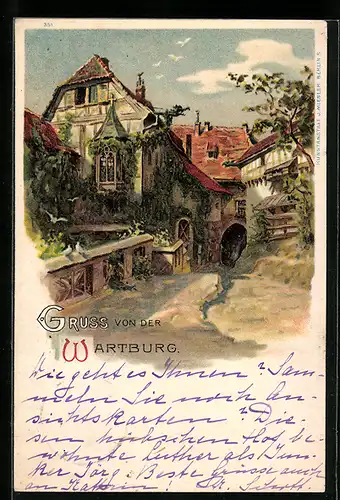 331
KUNSTANSTALT J. MIESLER, BERLIN S.
GRUSS VON DER
WARTBURG.
Wie geht es Ihnen? Sam-
meln Sie noch An-
sichtskarten? Die-
sen hübschen Hof, be-
wohnte Luther als Jun-
ker Jörg. Beste Grüsse auch
an Kathrin!